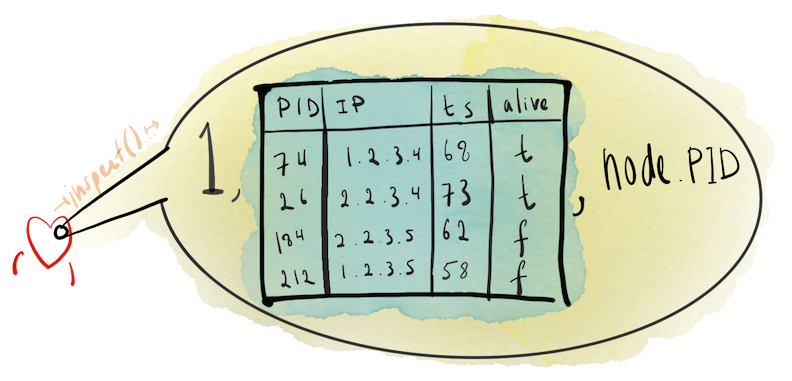 →inspect()→
1,
PID IP ts alive
74 1.2.3.4 68 t
26 2.2.3.4 73 t
184 2.2.3.5 62 f
212 1.2.3.5 58 f
, node.PID